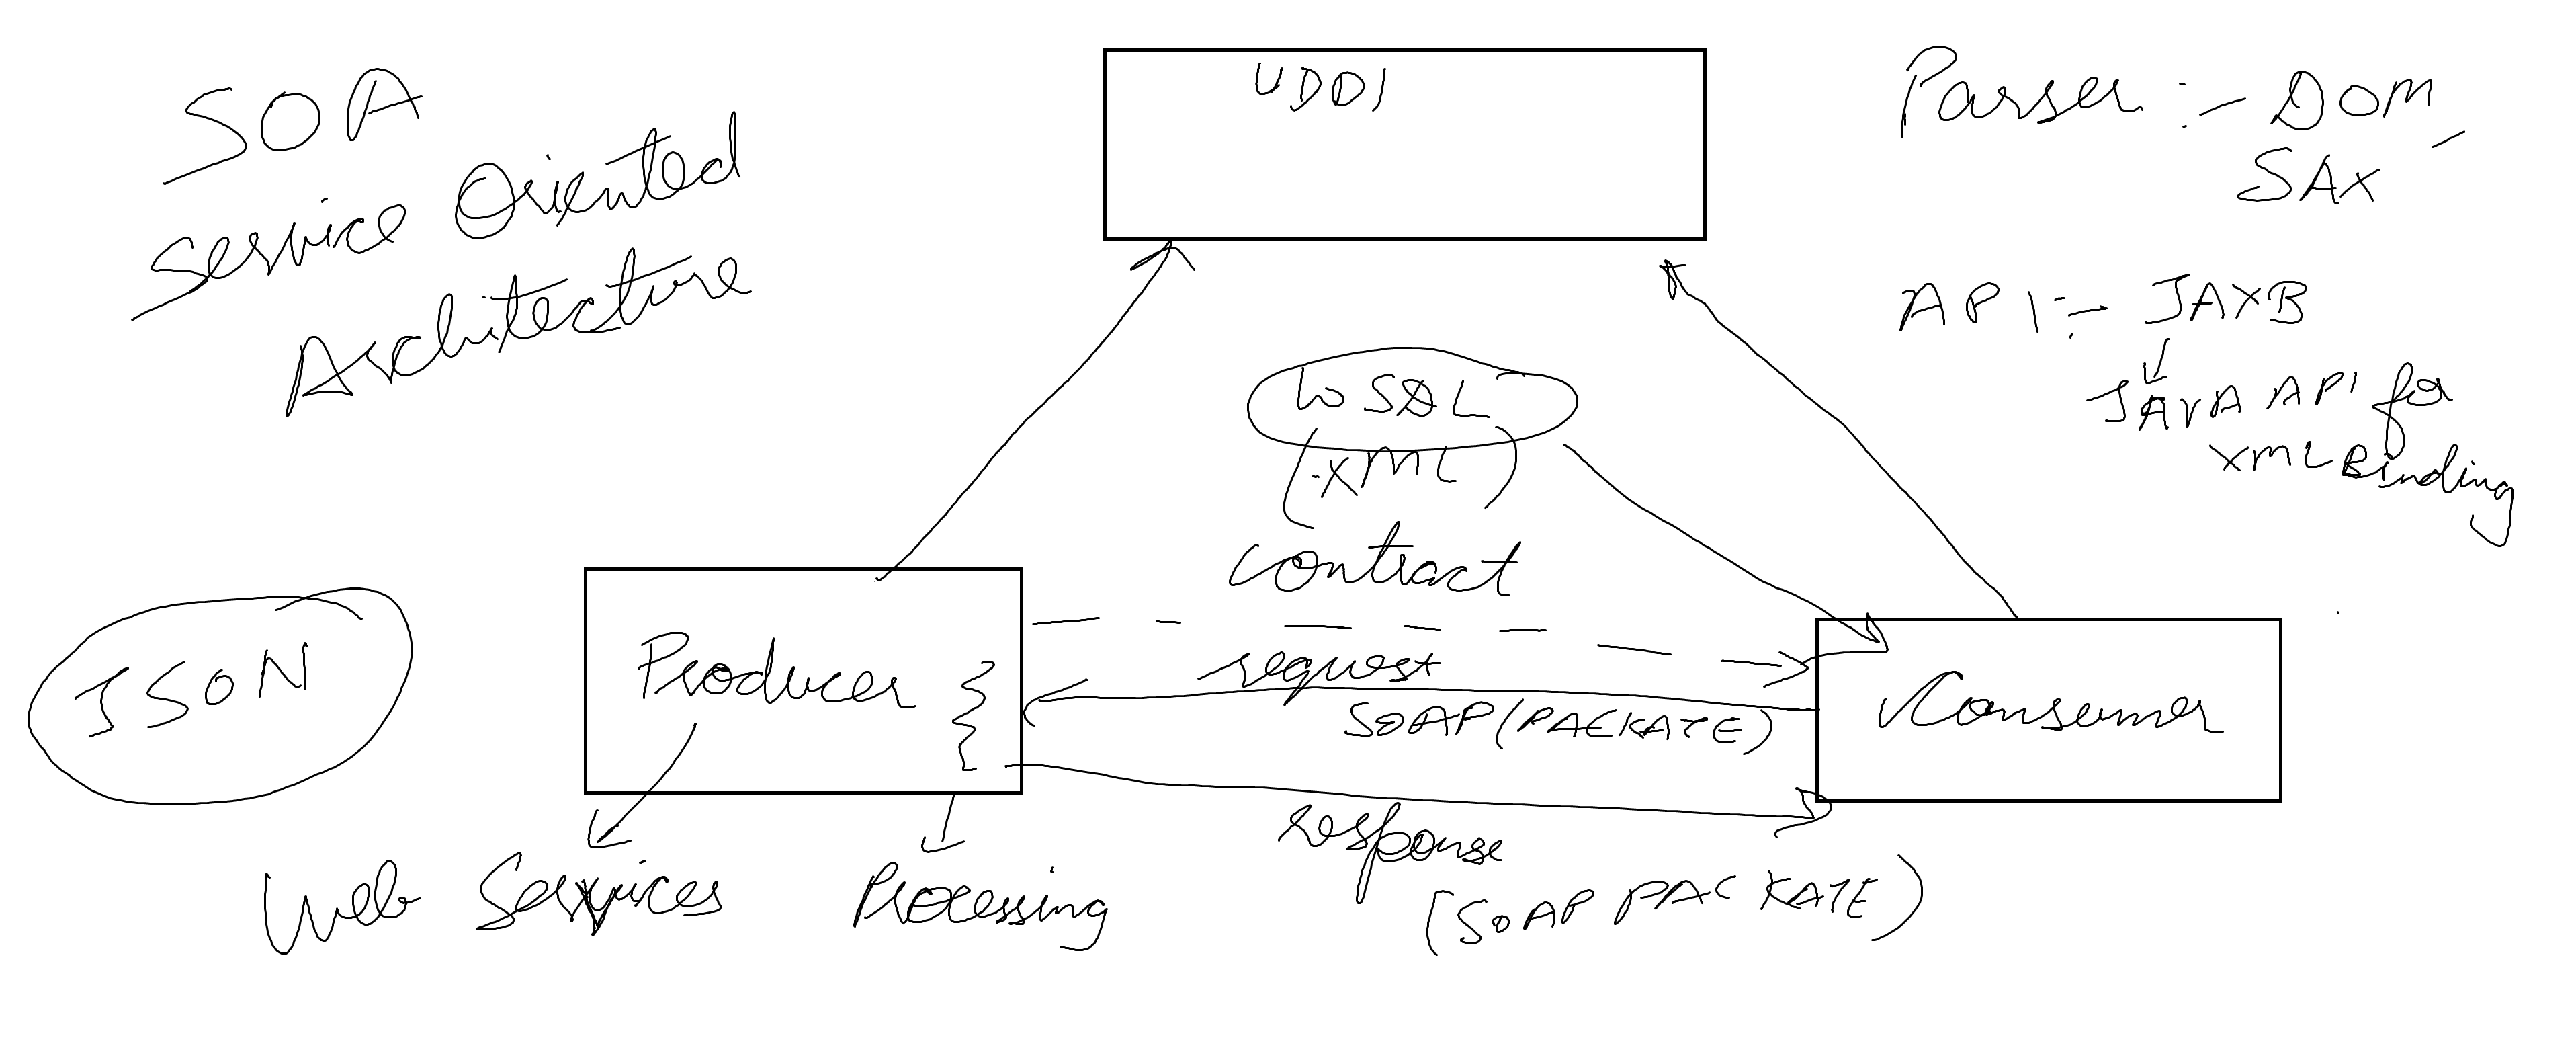 SOA
Service Oriented
Architecture
UDDI
Parser :- DOM,
SAX
API :- JAXB
JAVA API for
XML Binding
WSDL
(.XML)
Contract
JSON
Producer
request
SOAP (PACKATE)
Consumer
response
(SOAP PACKATE)
Web Services
Processing